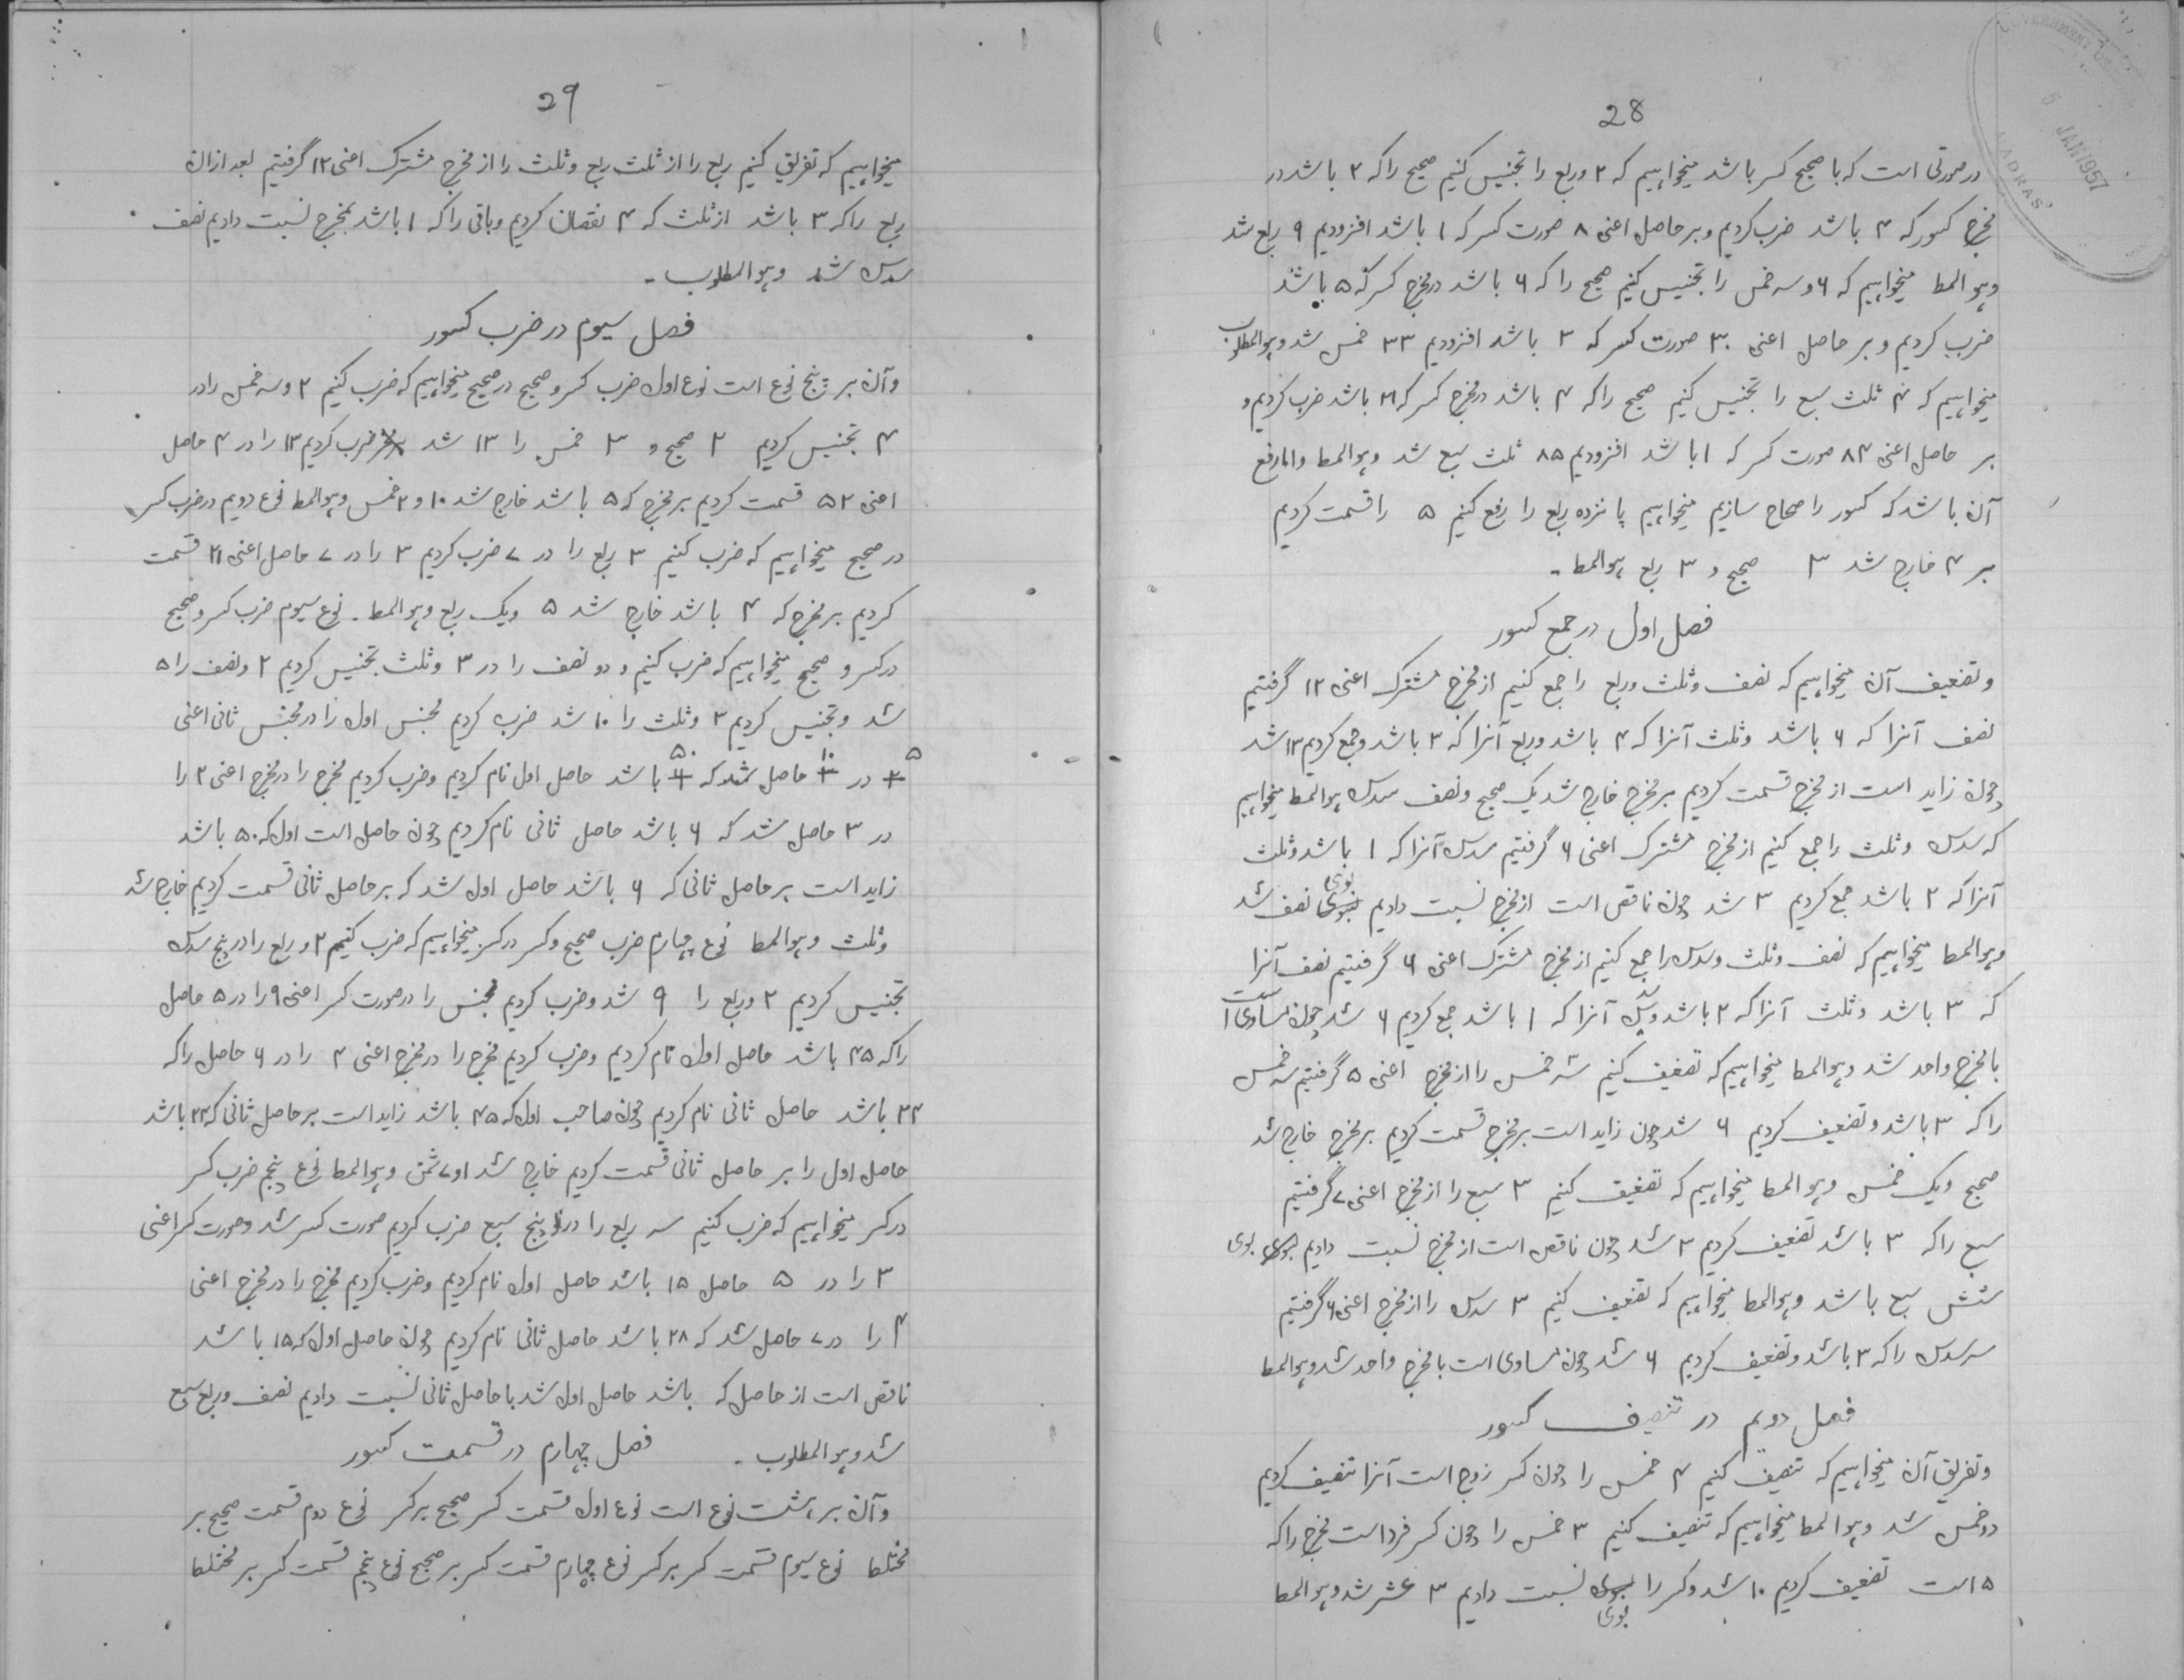 28
درصورتی است که با صحیح کسر باشد میخواہیم که ۲ وربع را تجنیس کنیم صحیح را که ۲ باشد در
مخرج کسور که ۴ باشد ضرب کردیم و بر حاصل اعنی ۸ صورت کسر که ۱ باشد افزودیم ۹ ربع شد
وہو المط میخواہیم که ۶ و سه خمس را تجنیس کنیم صحیح را که ۶ باشد درمخرج کسر که ۵ باشد
ضرب کردیم و بر حاصل اعنی ۳۰ صورت کسر که ۳ باشد افزودیم ۳۳ خمس شد وہو المطلوب
میخواہیم که ۴ ثلث سبع را تجنیس کنیم صحیح را که ۴ باشد درمخرج کسر که ۲۱ باشد ضرب کردیم و
بر حاصل اعنی ۸۴ صورت کسر که ۱ باشد افزودیم ۸۵ ثلث سبع شد وہو المط واما رفع
آن باشد که کسور را صحاح سازیم میخواہیم پانزده ربع را رفع کنیم ۵ را قسمت کردیم
بر ۴ خارج شد ۳ صحیح و ۳ ربع ہو المط۔
فصل اول در جمع کسور
وتضعیف آن میخواہیم که نصف وثلث وربع را جمع کنیم از مخرج مشترک اعنی ۱۲ گرفتیم
نصف آنرا که ۶ باشد وثلث آنرا که ۴ باشد وربع آنرا که ۳ باشد وجمع کردیم ۱۳ شد
چون زاید است از مخرج قسمت کردیم بر مخرج خارج شد یک صحیح ونصف سدس ہو المط میخواہیم
که سدس وثلث را جمع کنیم از مخرج مشترک اعنی ۶ گرفتیم سدس آنرا که ۱ باشد وثلث
آنرا که ۲ باشد جمع کردیم ۳ شد چون ناقص است از مخرج نسبت دادیم بوی نصف شد
وہو المط میخواہیم که نصف وثلث وسدس را جمع کنیم از مخرج مشترک اعنی ۶ گرفتیم نصف آنرا
که ۳ باشد وثلث آنرا که ۲ باشد وسدس آنرا که ۱ باشد جمع کردیم ۶ شد چون مساوی است
با مخرج واحد شد وہو المط میخواہیم که تضعیف کنیم سه خمس را از مخرج اعنی ۵ گرفتیم سه خمس
را که ۳ باشد وتضعیف کردیم ۶ شد چون زاید است بر مخرج قسمت کردیم بر مخرج خارج شد
صحیح ویک خمس وہو المط میخواہیم که تضعیف کنیم ۳ سبع را از مخرج اعنی ۷ گرفتیم
سبع را که ۳ باشد تضعیف کردیم ۳ شد چون ناقص است از مخرج نسبت دادیم بوی
شش سبع باشد وہو المط میخواہیم که تضعیف کنیم ۳ سدس را از مخرج اعنی ۶ گرفتیم
سه سدس را که ۳ باشد وتضعیف کردیم ۶ شد چون مساوی است با مخرج واحد شد وہو المط
فصل دوم در تنصیف کسور
وتفریق آن میخواہیم که تنصیف کنیم ۴ خمس را چون کسر زوج است آنرا تنصیف کردیم
دوخمس شد وہو المط میخواہیم که تنصیف کنیم ۳ خمس را چون کسر فرد است مخرج را که
۵ است تضعیف کردیم ۱۰ شد وکسر را بوی نسبت دادیم ۳ عشر شد وہو المط
29
میخواہیم که تفریق کنیم ربع را از ثلث ربع وثلث را از مخرج مشترک اعنی ۱۲ گرفتیم بعد ازان
ربع را که ۳ باشد از ثلث که ۴ نقصان کردیم وباقی را که ۱ باشد بمخرج نسبت دادیم نصف
سدس شد وہو المطلوب۔
فصل سیوم در ضرب کسور
وآن بر پنج نوع است نوع اول ضرب کسر وصحیح در صحیح میخواہیم که ضرب کنیم ۲ وسه خمس را در
۴ تجنیس کردیم ۲ صحیح و ۳ خمس را ۱۳ شد ضرب کردیم ۱۳ را در ۴ حاصل
اعنی ۵۲ قسمت کردیم بر مخرج که ۵ باشد خارج شد ۱۰ و ۲ خمس وہو المط نوع دویم در ضرب کسر
در صحیح میخواہیم که ضرب کنیم ۳ ربع را در ۷ ضرب کردیم ۳ را در ۷ حاصل اعنی ۲۱ قسمت
کردیم بر مخرج که ۴ باشد خارج شد ۵ ویک ربع وہو المط۔ نوع سیوم ضرب کسر وصحیح
در کسر و صحیح میخواہیم که ضرب کنیم و دو نصف را در ۳ وثلث تجنیس کردیم ۲ ونصف را ۵
شد وتجنیس کردیم ۳ وثلث را ۱۰ شد ضرب کردیم مجنس اول را در مجنس ثانی اعنی
۵ در ۱۰ حاصل شد که ۵۰ باشد حاصل اول نام کردیم وضرب کردیم مخرج را در مخرج اعنی ۲ را
در ۳ حاصل شد که ۶ باشد حاصل ثانی نام کردیم چون حاصل است اول که ۵۰ باشد
زاید است بر حاصل ثانی که ۶ باشد حاصل اول شد که بر حاصل ثانی قسمت کردیم خارج شد
وثلث وہو المط نوع چہارم ضرب صحیح وکسر در کسر میخواہیم که ضرب کنیم ۲ و ربع را در پنج سدس
تجنیس کردیم ۲ وربع را ۹ شد وضرب کردیم مجنس را در صورت کسر اعنی ۹ را در ۵ حاصل
را که ۴۵ باشد حاصل اول نام کردیم وضرب کردیم مخرج را در مخرج اعنی ۴ را در ۶ حاصل را که
۲۴ باشد حاصل ثانی نام کردیم چون صاحب اول که ۴۵ باشد زاید است بر حاصل ثانی که ۲۴ باشد
حاصل اول را بر حاصل ثانی قسمت کردیم خارج شد ۱ و ۷ ثمن وہو المط نوع پنجم ضرب کسر
در کسر میخواہیم که ضرب کنیم سه ربع را در پنج سبع ضرب کردیم صورت کسر شد وصورت کسر اعنی
۳ را در ۵ حاصل ۱۵ باشد حاصل اول نام کردیم وضرب کردیم مخرج را در مخرج اعنی
۴ را در ۷ حاصل شد که ۲۸ باشد حاصل ثانی نام کردیم چون حاصل اول که ۱۵ باشد
ناقص است از حاصل که باشد حاصل اول شد با حاصل ثانی نسبت دادیم نصف وربع سبع
شد وہو المطلوب۔ فصل چہارم در قسمت کسور
وآن بر ہشت نوع است نوع اول قسمت کسر صحیح بر کسر نوع دوم قسمت صحیح بر
مختلط نوع سیوم قسمت کسر بر کسر نوع چہارم قسمت کسر بر صحیح نوع پنجم قسمت کسر بر مختلط